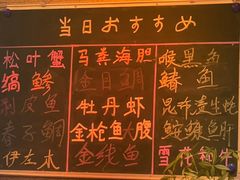 当日おすすめ
松叶蟹
缟鲹
剥皮鱼
春子鲷
伊左木
马粪海胆
金目鲷
牡丹虾
金枪鱼大腹
金纯鱼
喉黑鱼
鰆鱼
昆布渍生蚝
鮟鱇鱼肝
雪花和牛